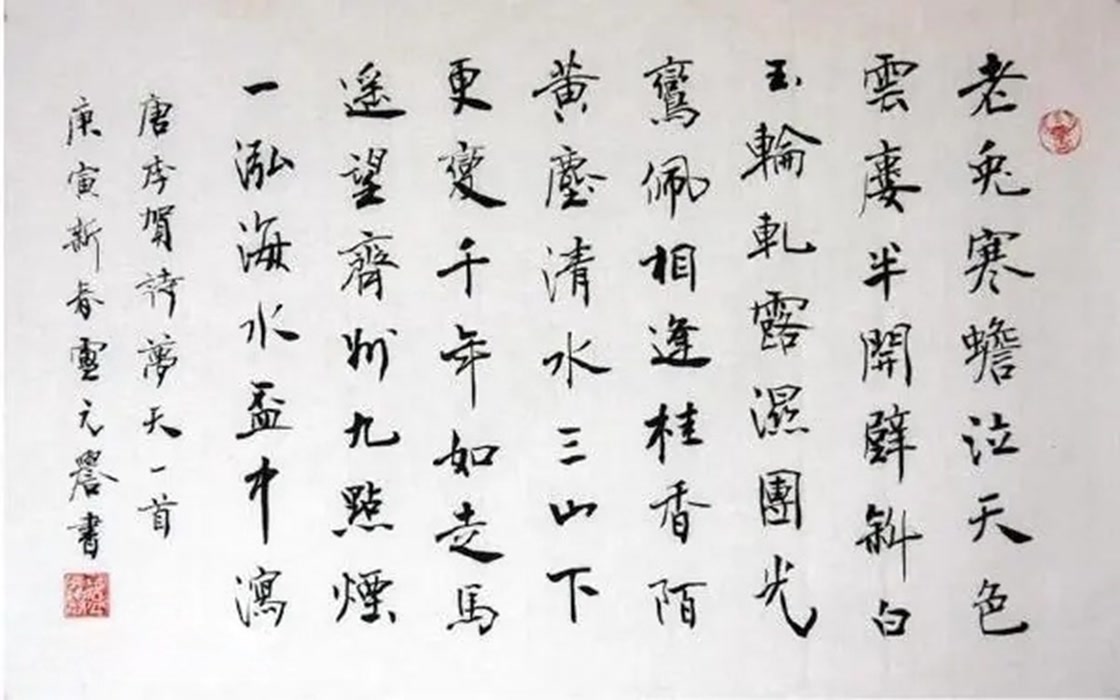 老兎寒蟾泣天色
雲廔半開壁斜白
玉輪軋露濕團光
鸞佩相逢桂香陌
黄塵清水三山下
更變千年如走馬
遥望齊州九點煙
一泓海水盃中瀉
唐李賀詩夢天一首
庚寅新春雲元譽書